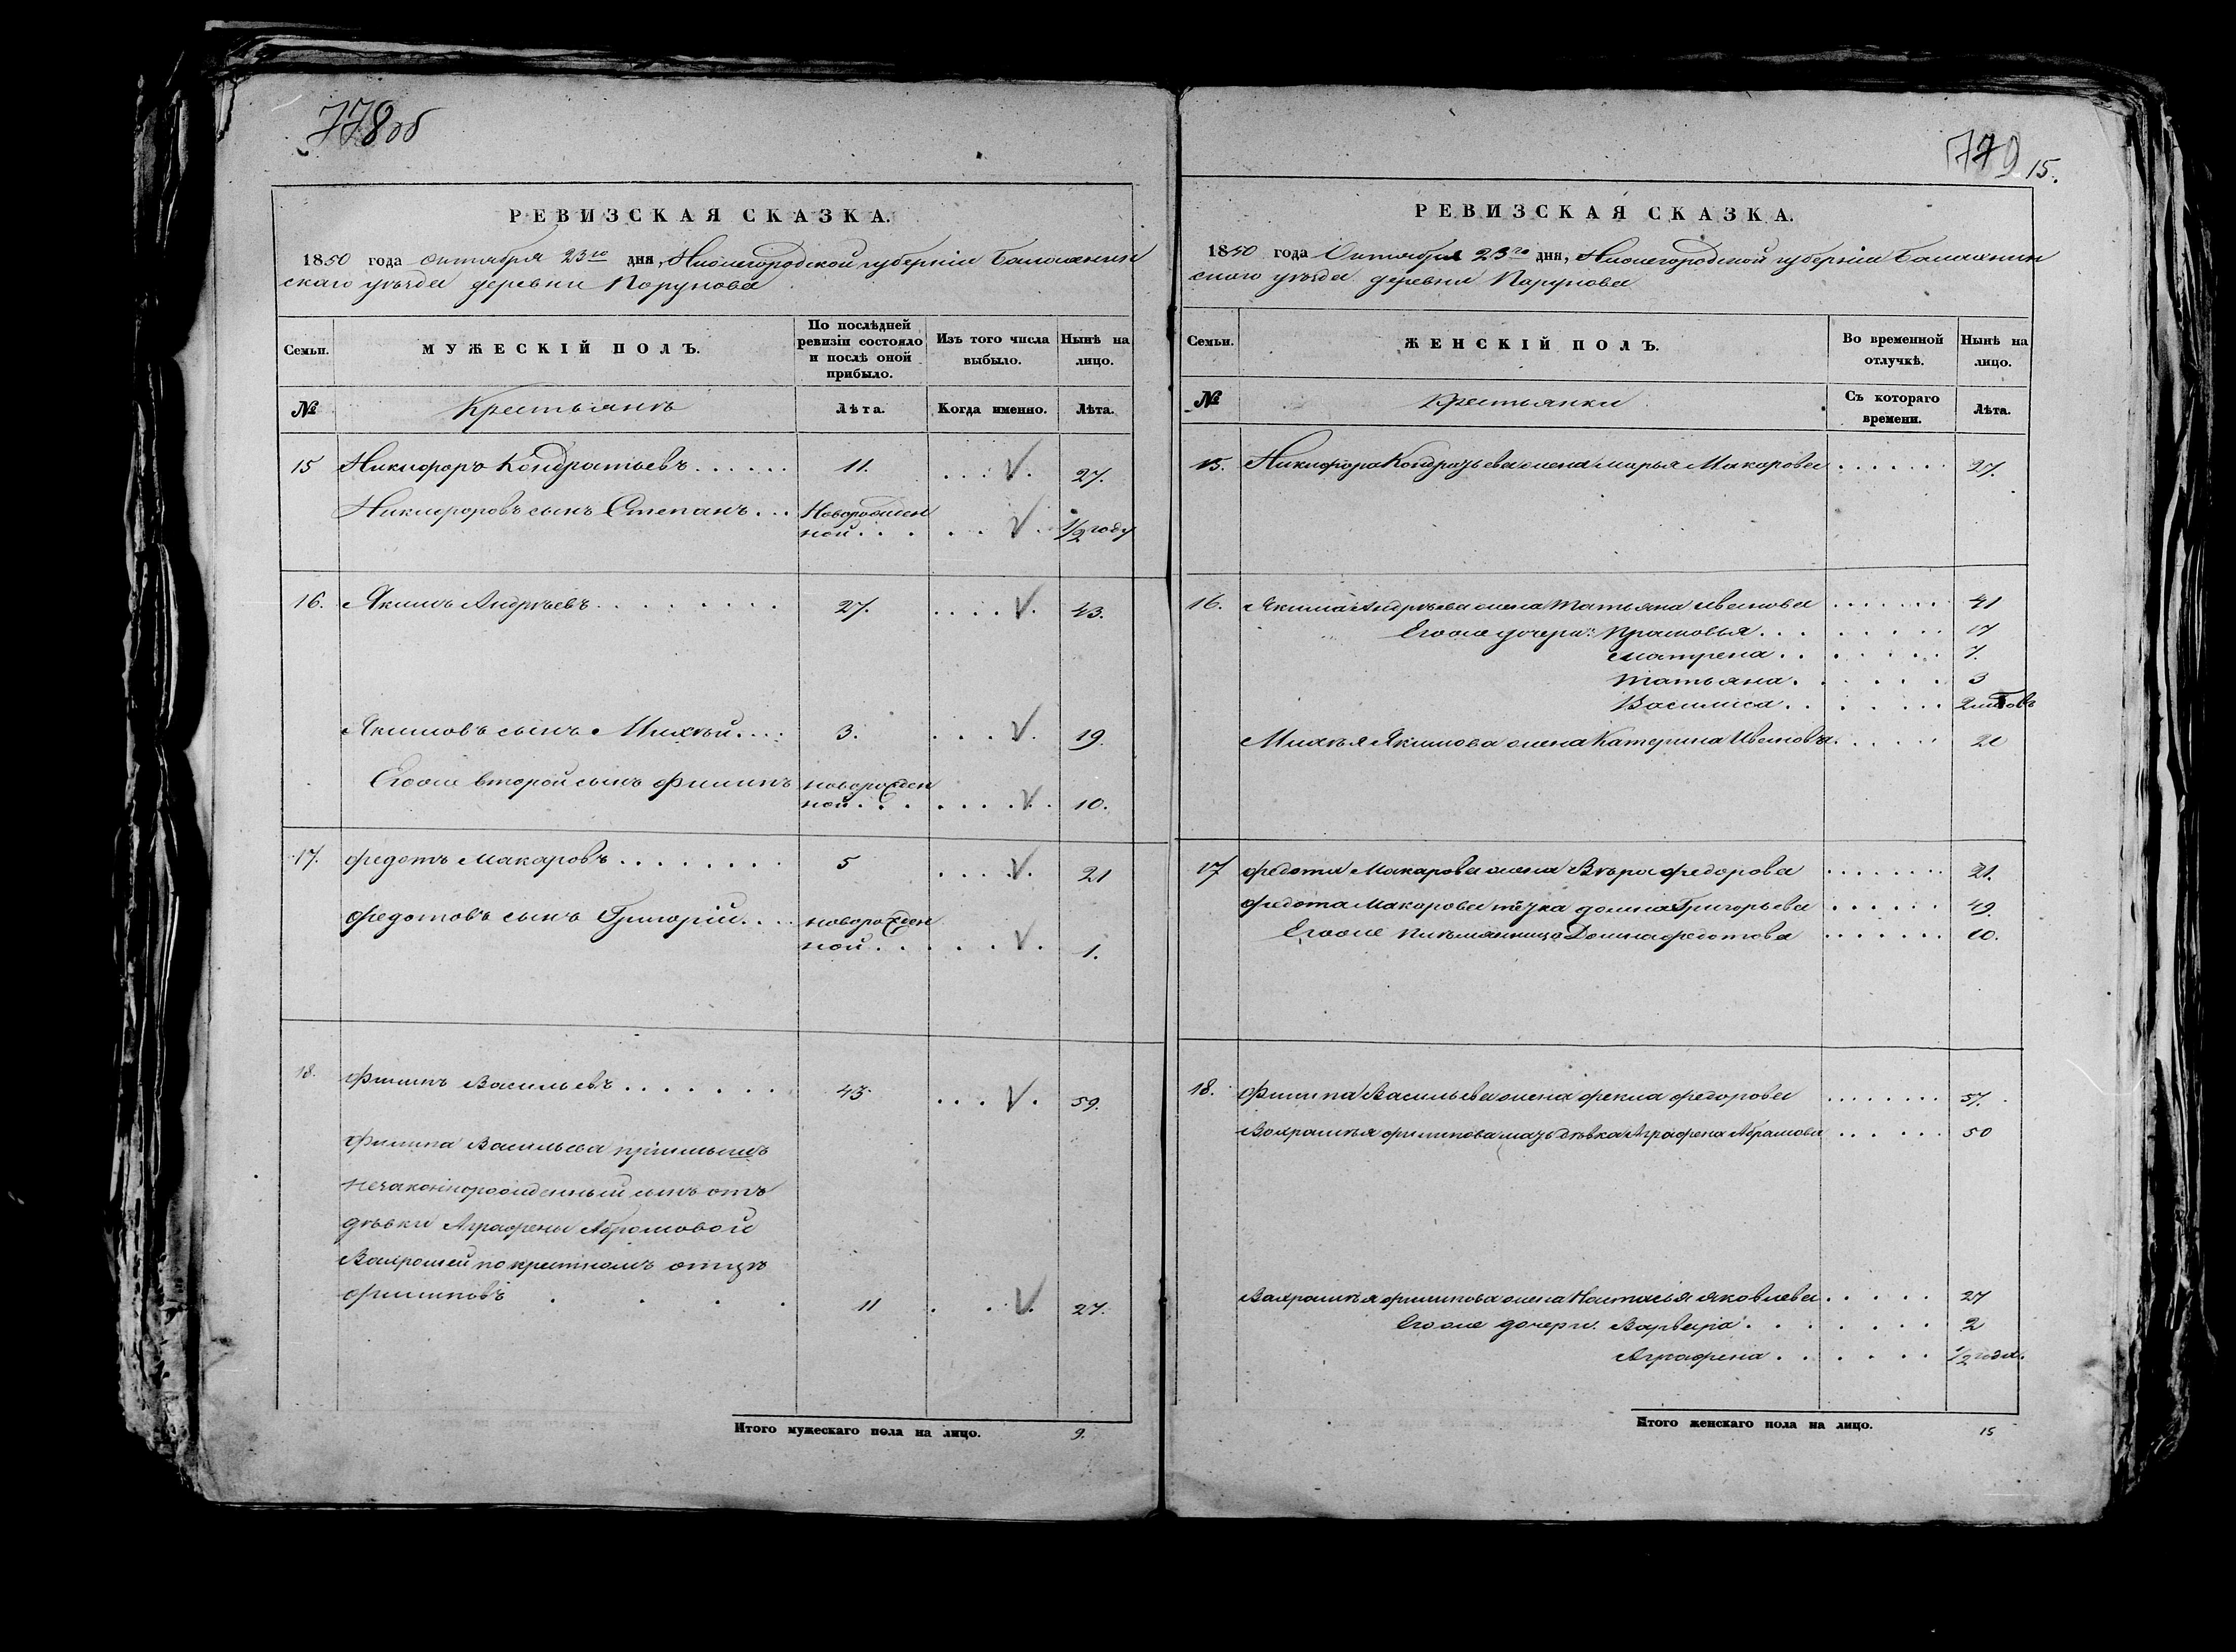 778об
РЕВИЗСКАЯ СКАЗКА.
1850 года октября 23го дня, Нижегородской губерніи Балахнин
скаго уѣзда деревни Порунова
Семьи.
МУЖЕСКІЙ ПОЛЪ.
По послѣдней
ревизіи состояло
и послѣ оной
прибыло.
Изъ того числа
выбыло.
Нынѣ на
лицо.
№ Крестьянъ Лѣта. Когда именно. Лѣта.
15 Никифоръ Кондратьевъ 11. 27.
Никифоровъ сынъ Степанъ Новорожден
ной 1/2 году
16. Якимъ Андрѣевъ 27. 43.
Якимовъ сынъ Михѣй 3. 19.
Егоже второй сынъ Филипъ новорожден
ной 10.
17. Федотъ Макаровъ 5 21
Федотовъ сынъ Григорій новорожден
ной 1.
18. Филипъ Васильевъ 43 59.
Филипа Васильева пріимышъ
незаконнорожденный сынъ отъ
дѣвки Аграфены Абрамовой
Вахромей по крестномъ отцѣ
Филиповъ 11 27.
Итого мужескаго пола на лицо. 9.
779 15.
РЕВИЗСКАЯ СКАЗКА.
1850 года Октября 23го дня, Нижегородской губерніи Балахнин
скаго уѣзда деревни Парунова
Семьи.
ЖЕНСКІЙ ПОЛЪ.
Во временной
отлучкѣ.
Нынѣ на
лицо.
№ Крестьянки
Съ котораго
времени.
Лѣта.
15. Никифора Кондратьева жена Марья Макарова 27.
16. Якима Андрѣева жена Татьяна Иванова 41
Егоже дочери: Прасковья 17
Матрена 7.
Татьяна 3
Василиса
Михѣя Якимова жена Катерина Иванова 20
17 Федота Макарова жена Вѣра Федорова 21.
Федота Макарова тётка домна Григорьева 49.
Егоже племянница Домна Федотова 10.
18. Филипа Васильева жена Фекла Федорова 57.
Вахрамѣя Филипова мать дѣвка Аграфена Абрамова 50
Вахрамѣя Филипова жена Настасья яковлева 27
Егоже дочери. Варвара 2
Аграфена 1/2 года.
Итого женскаго пола на лицо. 15